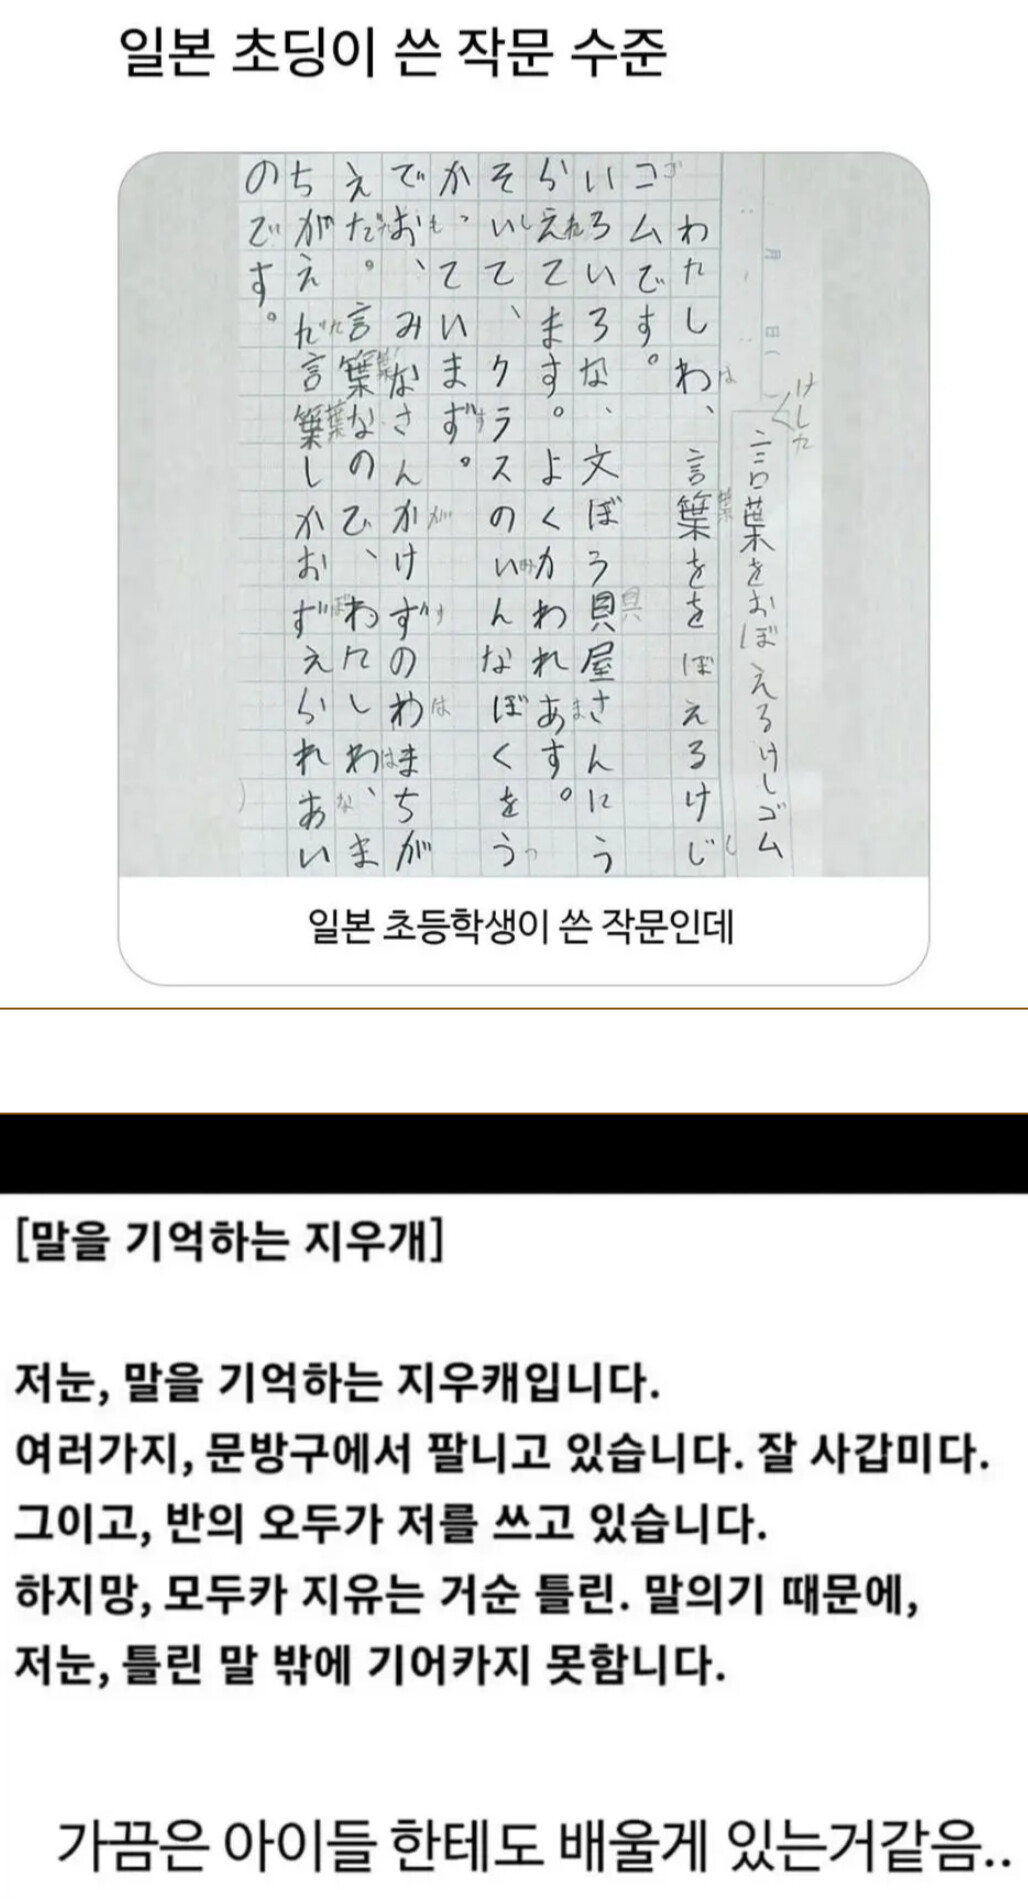 일본 초딩이 쓴 작문 수준
けした
言葉をおぼえるけしゴム
わたしわ、言葉ををぼえるけじ
コムです。
いろいろな、文ぼう貝屋さんにう
らえてます。よくかわれあす。
そいてて、クラスのいんなぼくをう
か、ていまず。
でお、みなさんかけずのわまちが
えた。言葉なので、わたしわ、ま
ちがえだ言葉しかおずえられあい
のです。
일본 초등학생이 쓴 작문인데
[말을 기억하는 지우개]
저눈, 말을 기억하는 지우캐입니다.
여러가지, 문방구에서 팔니고 있습니다. 잘 사갑미다.
그이고, 반의 오두가 저를 쓰고 있습니다.
하지망, 모두카 지유는 거순 틀린. 말의기 때문에,
저눈, 틀린 말 밖에 기어카지 못함니다.
가끔은 아이들 한테도 배울게 있는거같음..